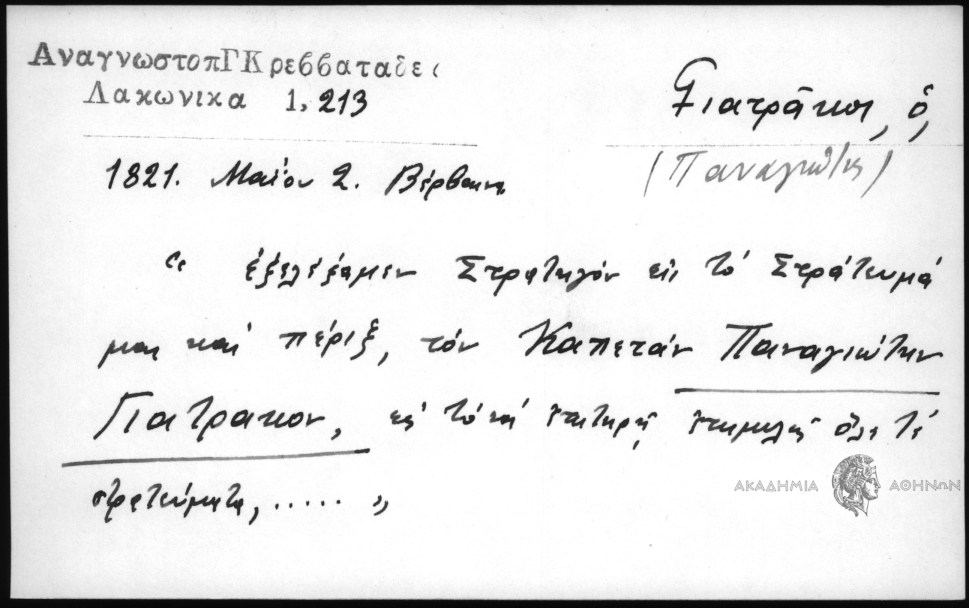 ΑναγνωστοπΓΚρεββαταδες
Λακωνικα 1, 213
Γιατράκοι, ὁ,
(Παναγιώτης)
1821. Μαΐου 2. Βέρβαινα
" ἐξελέξαμεν Στρατηγόν εἰς τό Στράτευμά
μας καί πέριξ, τόν Καπετάν Παναγιώτην
Γιατράκον, εἰς τό νά ἐπιμελῶς ὅλα τά
στρατεύματα, ..... "
ΑΚΑΔΗΜΙΑ ΑΘΗΝΩΝ